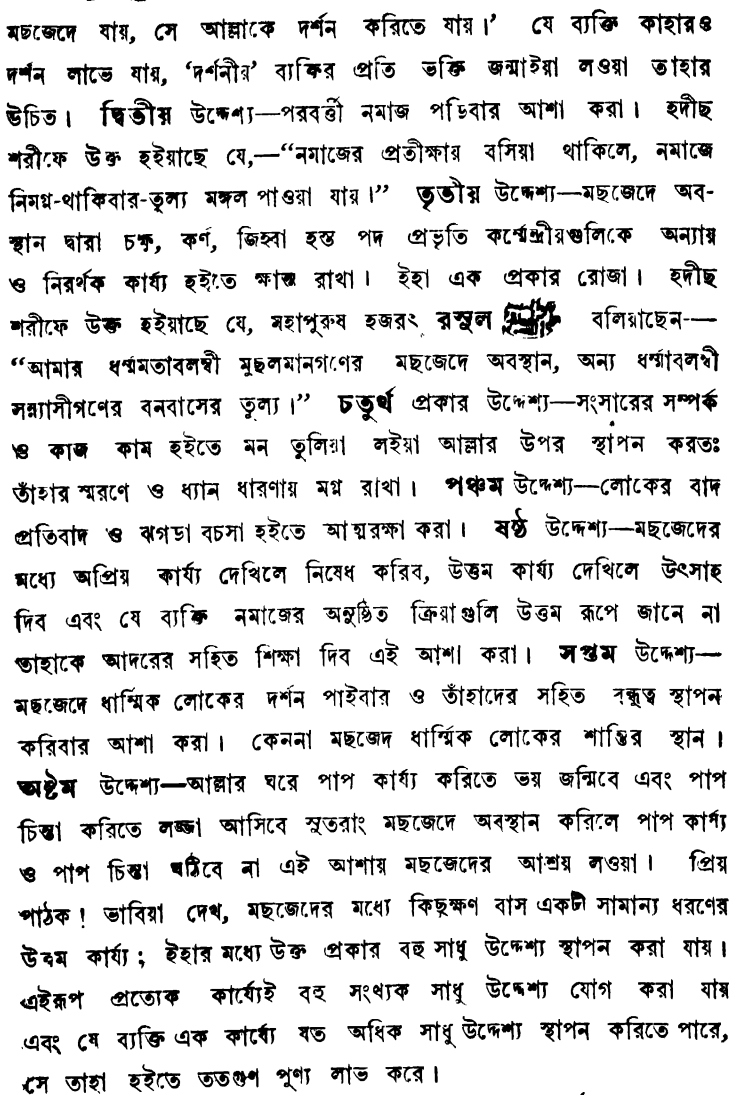 মছজেদে যায়, সে আল্লাকে দর্শন করিতে যায়।’ যে ব্যক্তি কাহারও
দর্শন লাভে যায়, ‘দর্শনীর’ ব্যক্তির প্রতি ভক্তি জন্মাইয়া লওয়া তাহার
উচিত। দ্বিতীয় উদ্দেশ্য—পরবর্ত্তী নমাজ পড়িবার আশা করা। হদীছ
শরীফে উক্ত হইয়াছে যে,—“নমাজের প্রতীক্ষায় বসিয়া থাকিলে, নমাজে
নিমগ্ন-থাকিবার-তুল্য মঙ্গল পাওয়া যায়।” তৃতীয় উদ্দেশ্য—মছজেদে অব-
স্থান দ্বারা চক্ষু, কর্ণ, জিহ্বা হস্ত পদ প্রভৃতি কর্ম্মেন্দ্রীয়গুলিকে অন্যায়
ও নিরর্থক কার্য্য হইতে ক্ষান্ত রাখা। ইহা এক প্রকার রোজা। হদীছ
শরীফে উক্ত হইয়াছে যে, মহাপুরুষ হজরৎ রসুল বলিয়াছেন—
“আমার ধর্ম্মমতাবলম্বী মুছলমানগণের মছজেদে অবস্থান, অন্য ধর্ম্মাবলম্বী
সন্ন্যাসীগণের বনবাসের তুল্য।” চতুর্থ প্রকার উদ্দেশ্য—সংসারের সম্পর্ক
ও কাজ কাম হইতে মন তুলিয়া লইয়া আল্লার উপর স্থাপন করতঃ
তাঁহার স্মরণে ও ধ্যান ধারণায় মগ্ন রাখা। পঞ্চম উদ্দেশ্য—লোকের বাদ
প্রতিবাদ ও ঝগড়া বচসা হইতে আত্মরক্ষা করা। ষষ্ঠ উদ্দেশ্য—মছজেদের
মধ্যে অপ্রিয় কার্য্য দেখিলে নিষেধ করিব, উত্তম কার্য্য দেখিলে উৎসাহ
দিব এবং যে ব্যক্তি নমাজের অনুষ্ঠিত ক্রিয়াগুলি উত্তম রূপে জানে না
তাহাকে আদরের সহিত শিক্ষা দিব এই আশা করা। সপ্তম উদ্দেশ্য—
মছজেদে ধার্ম্মিক লোকের দর্শন পাইবার ও তাঁহাদের সহিত বন্ধুত্ব স্থাপন
করিবার আশা করা। কেননা মছজেদ ধার্ম্মিক লোকের শান্তির স্থান।
অষ্টম উদ্দেশ্য—আল্লার ঘরে পাপ কার্য্য করিতে ভয় জন্মিবে এবং পাপ
চিন্তা করিতে লজ্জা আসিবে সুতরাং মছজেদে অবস্থান করিলে পাপ কার্য্য
ও পাপ চিন্তা ঘঠিবে না এই আশায় মছজেদের আশ্রয় লওয়া। প্রিয়
পাঠক! ভাবিয়া দেখ, মছজেদের মধ্যে কিছুক্ষণ বাস একটা সামান্য ধরণের
উত্তম কার্য্য; ইহার মধ্যে উক্ত প্রকার বহু সাধু উদ্দেশ্য স্থাপন করা যায়।
এইরূপ প্রত্যেক কার্য্যেই বহু সংখ্যক সাধু উদ্দেশ্য যোগ করা যায়
এবং যে ব্যক্তি এক কার্য্যে যত অধিক সাধু উদ্দেশ্য স্থাপন করিতে পারে,
সে তাহা হইতে ততগুণ পূণ্য লাভ করে।